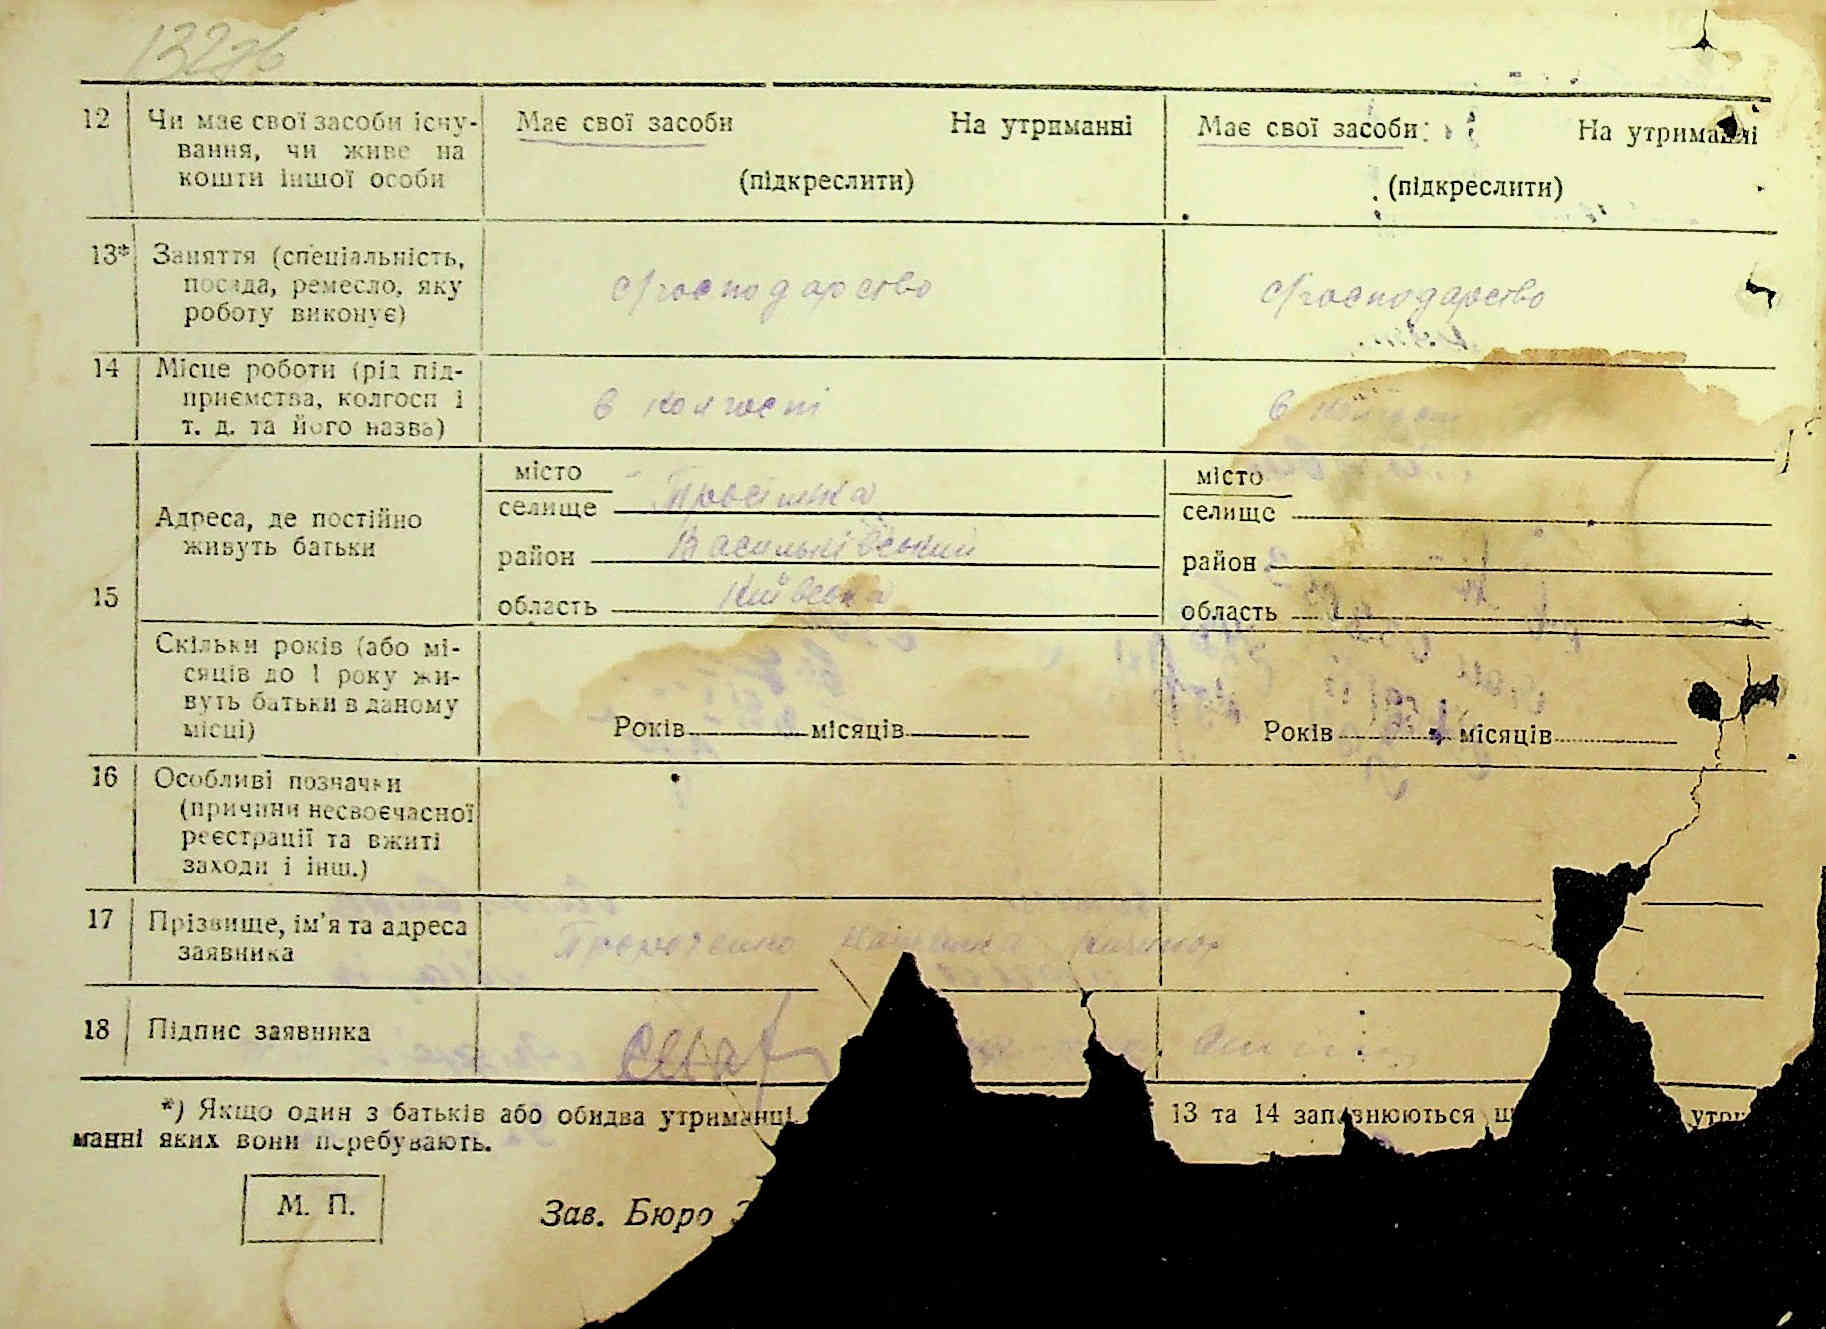 12 Чи має свої засоби існу-
вання, чи живе на
кошти іншої особи
Має свої засоби На утриманні
(підкреслити)
Має свої засоби На утриманні
(підкреслити)
13* Заняття (спеціальність,
посада, ремесло, яку
роботу виконує)
с/господарство
с/господарство
14 Місце роботи (рід під-
приємства, колгосп і
т. д. та його назва)
в колгоспі
в колгоспі
15 Адреса, де постійно
живуть батьки
місто
селище
район Васильківський
область Київська
місто
селище
район
область
Скільки років (або мі-
сяців до 1 року жи-
вуть батьки в даному
місці)
Років місяців
Років місяців
16 Особливі позначки
(причини несвоєчасної
реєстрації та вжиті
заходи і інш.)
17 Прізвище, ім'я та адреса
заявника
18 Підпис заявника
*) Якщо один з батьків або обидва утриманці 13 та 14 заповнюються
манні яких вони перебувають.
М. П.
Зав. Бюро